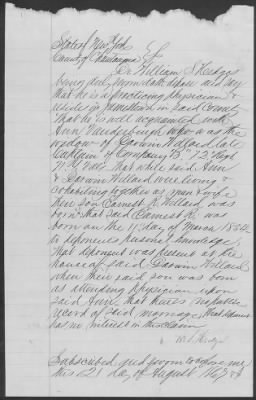 State of New York
County of Chautauqua } SS
Dr William S Hedges
being duly sworn doth depose and say
that he is a practicing physician &
resides in Jamestown in said County
That he is well acquainted with
Ann Vanderburgh who was the
widow of Darwin Willard late
Captain of Company "B" 72" Regt
N.Y. Vols that while said Ann
& Darwin Willard were living &
cohabiting together as man & wife
their son Earnest R. Willard was
born that said Earnest R. was
born on the 11" day of March 1862
to deponents personal knowledge
that deponent was present at the
house of said Darwin Willard
when their said son was born
as attending Physician upon
said Ann, that there is no public
record of said marriage, that deponent
has no interest in this claim
W S Hedges
Subscribed and sworn to before me
this 21 day of August 1867